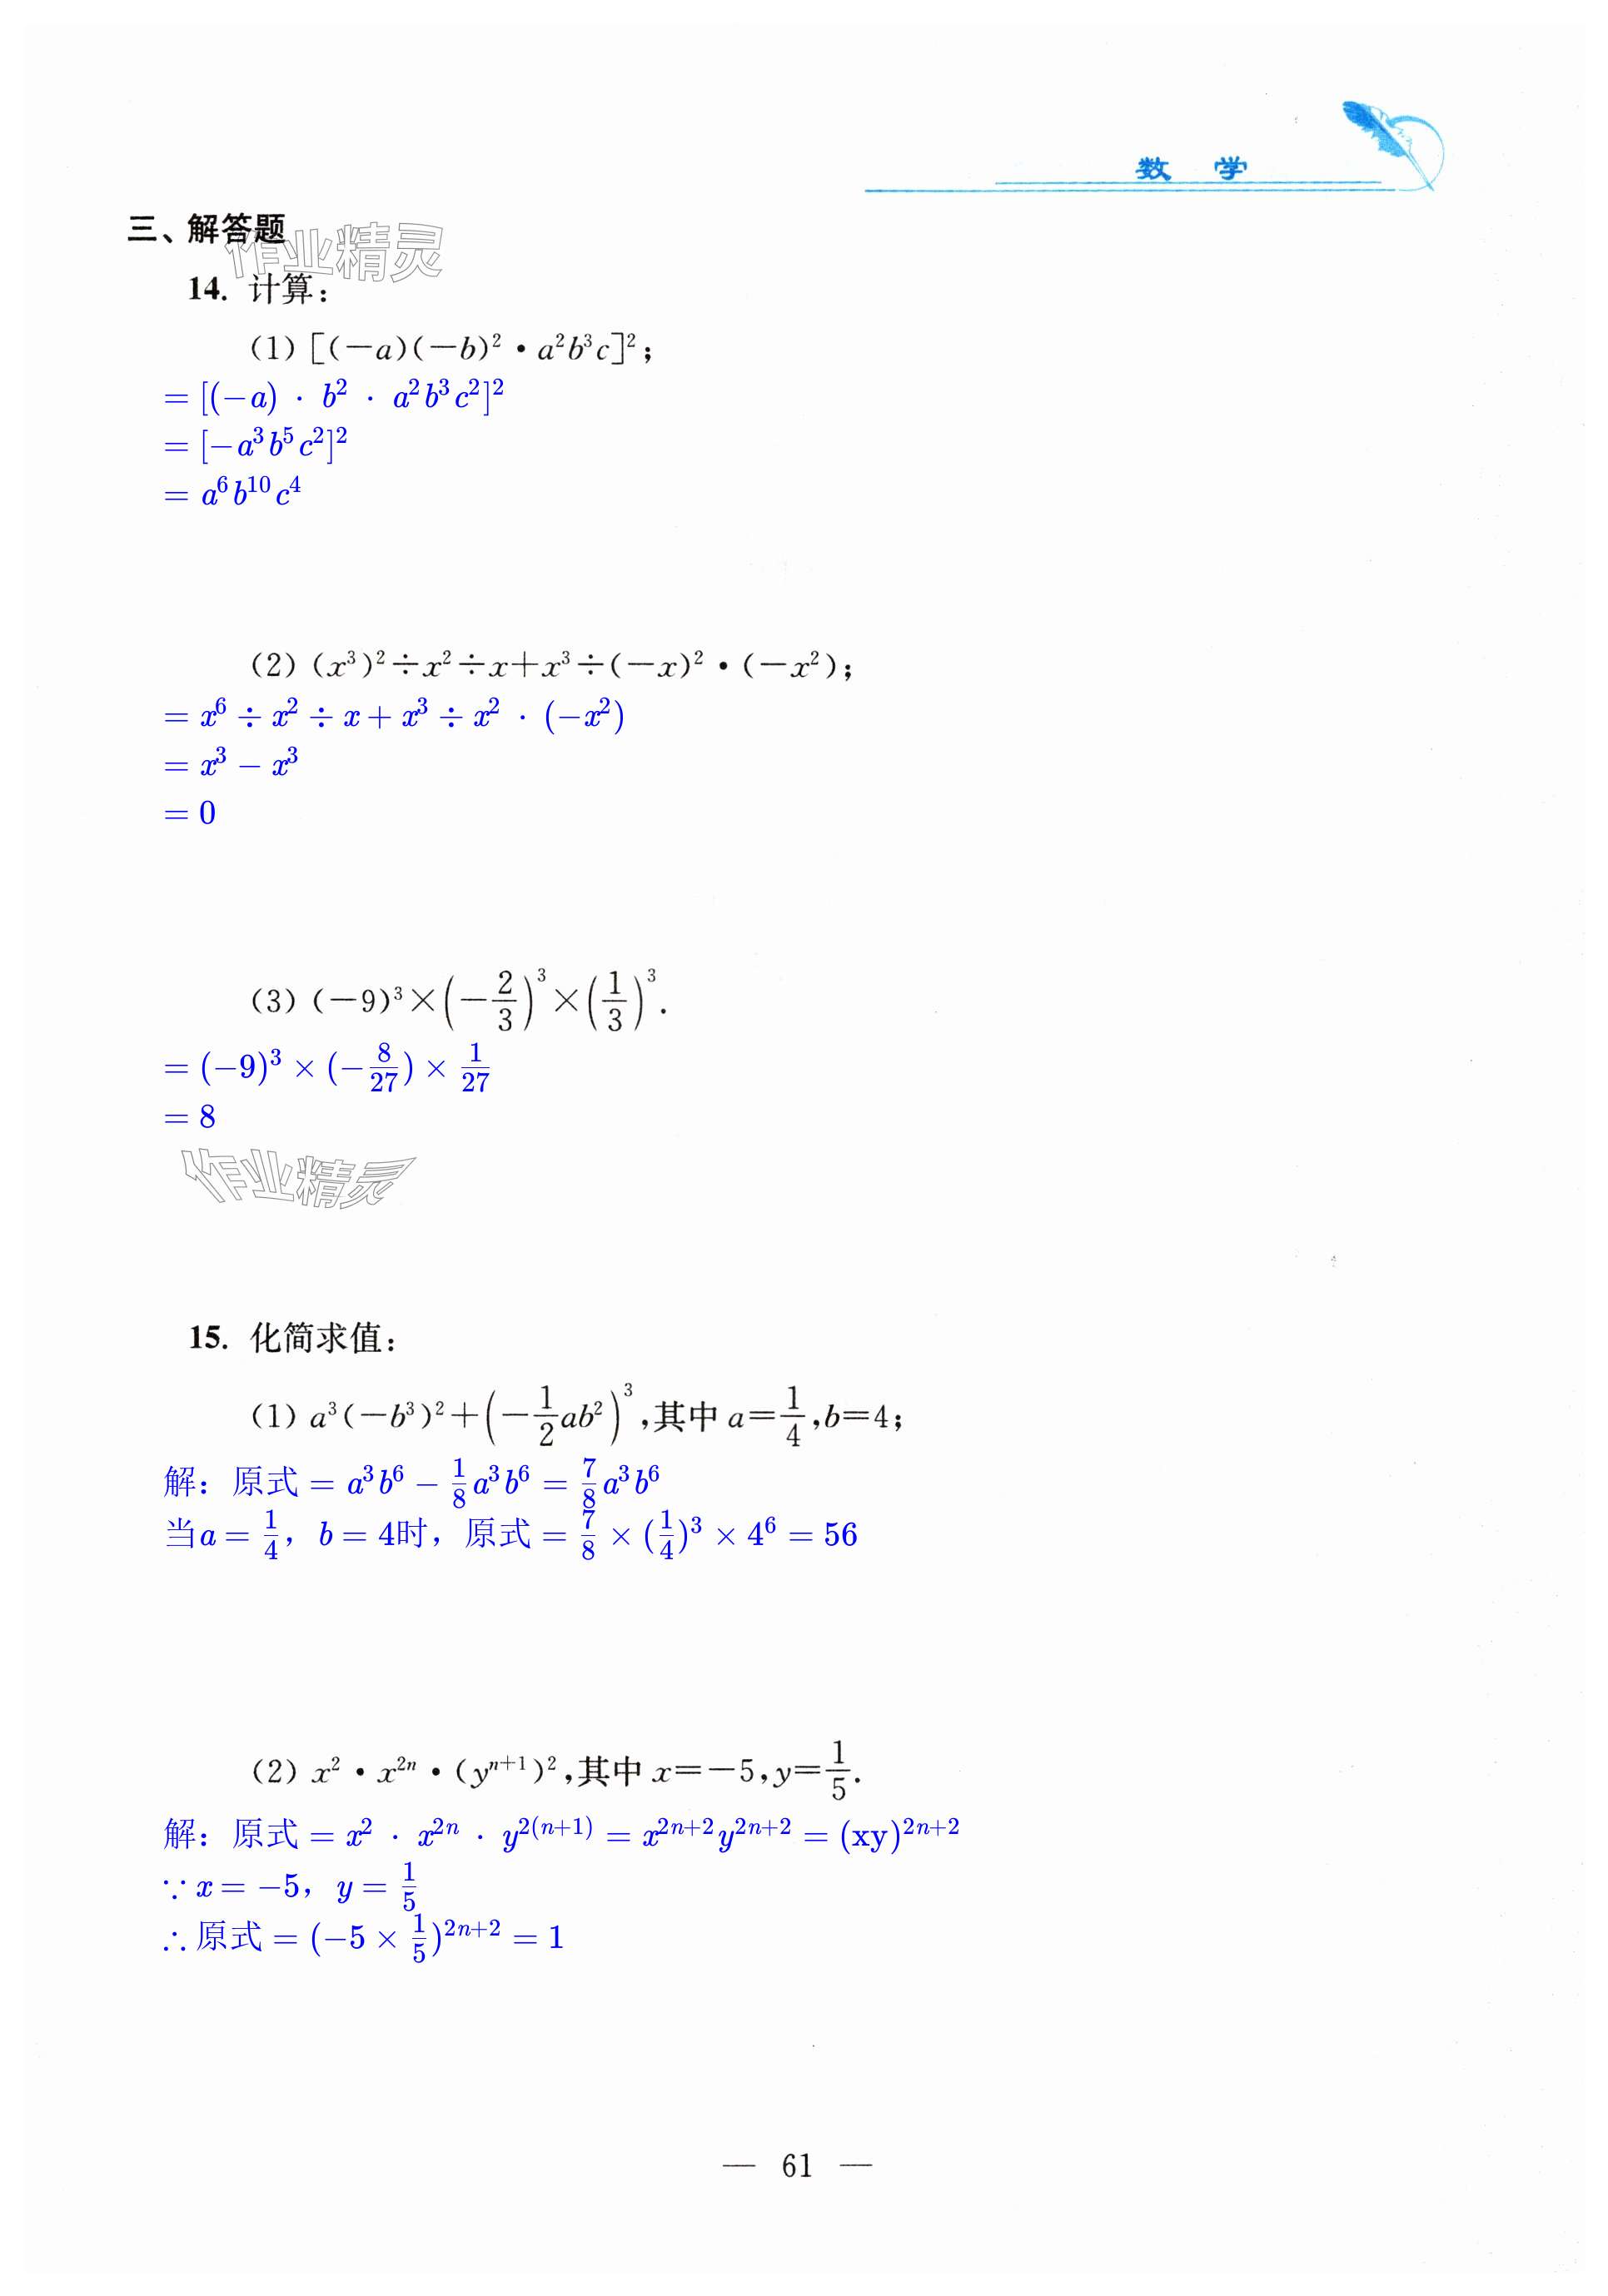 数 学
三、解答题
作业精灵
14. 计算:
(1) [(-a)(-b)²·a²b³c]²;
= [(-a) · b² · a²b³c²]²
= [-a³b⁵c²]²
= a⁶b¹⁰c⁴
(2) (x³)²÷x²÷x+x³÷(-x)²·(-x²);
= x⁶ ÷ x² ÷ x + x³ ÷ x² · (-x²)
= x³ - x³
= 0
(3) (-9)³×(-2/3)³×(1/3)³.
= (-9)³ × (-8/27) × 1/27
= 8
作业精灵
15. 化简求值:
(1) a³(-b³)²+(-1/2ab²)³,其中 a=1/4,b=4;
解:原式 = a³b⁶ - 1/8a³b⁶ = 7/8a³b⁶
当a = 1/4, b = 4时,原式 = 7/8 × (1/4)³ × 4⁶ = 56
(2) x²·x²ⁿ·(yⁿ⁺¹)²,其中 x=-5,y=1/5.
解:原式 = x² · x²ⁿ · y²⁽ⁿ⁺¹⁾ = x²ⁿ⁺²y²ⁿ⁺² = (xy)²ⁿ⁺²
∵ x = -5, y = 1/5
∴ 原式 = (-5 × 1/5)²ⁿ⁺² = 1
— 61 —